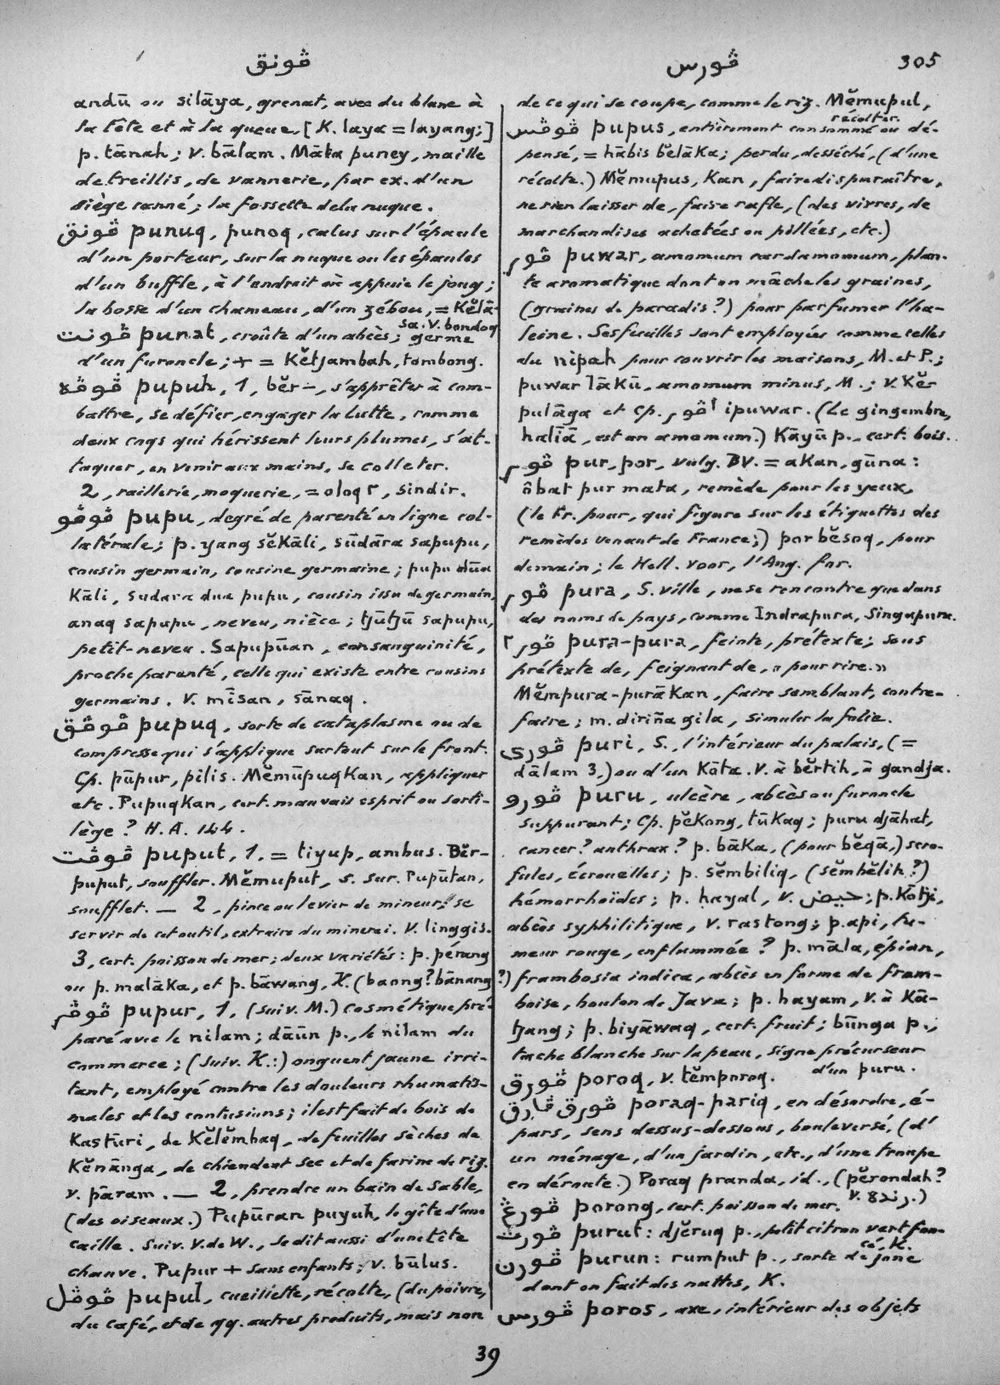 ڤونق
ڤورس
305
andū ou silāya, grenat, avec du blanc à
la tête et à la queue, [K. laya = layang;]
p. tānah; v. bālam. Māta puney, maille
de treillis, de vannerie, par ex. d'un
siège canné; la fossette de la nuque.
ڤونق punuq, punoq, calus sur l'épaule
d'un porteur, sur la nuque ou les épaules
d'un buffle, à l'endroit où appuie le joug;
la bosse d'un chameau, d'un zébou, = Kĕlā-
sa. v. bondoq
ڤونت punat, croûte d'un abcès; germe
d'un furoncle; + = Kĕtjambah, tombong.
ڤوڤه pupuh, 1, bĕr—, s'apprêter à com-
battre, se défier, engager la lutte, comme
deux coqs qui hérissent leurs plumes, s'at-
taquer, en venir aux mains, se colleter.
2, raillerie, moquerie, = oloq ٢, sindir.
ڤوڤو pupu, degré de parenté en ligne col-
latérale; p. yang sĕKāli, sūdāra sapupu,
cousin germain, cousine germaine; pupu dūa
Kāli, sudara dua pupu, cousin issu de germain,
anaq sapupu, neveu, nièce; tjūtjū sapupu,
petit-neveu. Sapupūan, consanguinité,
proche parenté, celle qui existe entre cousins
germains. V. mīsan, sānaq.
ڤوڤق pupuq, sorte de cataplasme ou de
compresse qui s'applique surtout sur le front.
Cp. pūpur, pilis. MĕmūpuqKan, appliquer
etc. PupuqKan, cert. mauvais esprit ou sorti-
lège? H.A. 144.
ڤوڤت puput, 1, = tiyup, ambus. Bĕr-
puput, souffler. Mĕmuput, s. sur. Pupūtan,
soufflet. — 2, pince ou levier de mineur; se
servir de cet outil, extraire du minerai. V. linggis.
3, cert. poisson de mer; deux variétés: p. pérang
ou p. malāka, et p. bāwang, K. (baong? bānang?)
ڤوڤر pupur, 1, (suiv. M.) cosmétique pré-
paré avec le nilam; dāūn p., le nilam du
commerce; (suiv. K.:) onguent jaune irri-
tant, employé contre les douleurs rhumatis-
males et les contusions; il est fait de bois de
Kastūri, de Kĕlĕmbaq, de feuilles sèches de
Kĕnānga, de chiendent sec et de farine de riz.
v. pāram. — 2, prendre un bain de sable,
(des oiseaux.) Pupūran puyuh, le gîte d'une
caille. Suiv. V. de W., se dit aussi d'une tête
chauve. Pupur + sans enfants; v. būlus.
ڤوڤل pupul, cueillette, récolte, (du poivre,
du café, et de qq. autres produits, mais non
de ce qui se coupe, comme le riz. Mĕmupul,
récolter.
ڤوڤس pupus, entièrement consommé ou dé-
pensé, = hābis bĕlāKa; perdu, desséché, (d'une
récolte.) Mĕmupus, Kan, faire disparaître,
ne rien laisser de, faire rafle, (des vivres, de
marchandises achetées ou pillées, etc.)
ڤور puwar, amomum cardamomum, plan-
te aromatique dont on mâche les graines,
(graines de paradis?) pour parfumer l'ha-
leine. Ses feuilles sont employées comme celles
du nipah pour couvrir les maisons, M. et P.;
puwar lāKū, amomum minus, M.; v. Kĕ-
pulāga et cp. اڤور ipuwar. (Le gingembre,
halīā, est un amomum.) Kāyū p., cert. bois.
ڤور pur, por, vulg. BV. = aKan, gūna:
ôbat pur mata, remède pour les yeux,
(le Fr. pour, qui figure sur les étiquettes des
remèdes venant de France;) por bĕsoq, pour
demain; le Holl. voor, l'Ang. for.
ڤور pura, S. ville, ne se rencontre que dans
des noms de pays, comme Indrapura, Singapura.
ڤور٢ pura-pura, feinte, prétexte; sous
prétexte de, feignant de, « pour rire. »
Mĕmpura-purāKan, faire semblant, contre-
faire; m. diriña gila, simuler la folie.
ڤوري puri, S., l'intérieur du palais, (=
dālam 3,) ou d'un Kōta. V. à bĕrtih, à gandja.
ڤورو puru, ulcère, abcès ou furoncle
suppurant; Cp. pĕKong, tūKaq; puru djāhat,
cancer? anthrax? p. bāKa, (pour bĕqā,) scro-
fules, écrouelles; p. sĕmbiliq, (sĕmbĕlih?)
hémorrhoïdes; p. hayal, v. حيض; p. Kotji,
abcès syphilitique, v. rastong; p. api, tu-
meur rouge, enflammée? p. māla, épian,
frambosia indica, abcès en forme de fram-
boise, bouton de Java; p. hayam, v. à Kā-
tjang; p. biyāwaq, cert. fruit; būnga p.,
tache blanche sur la peau, signe précurseur
d'un puru.
ڤورق poroq, v. tĕmporoq.
ڤورق ڤارق poraq-pariq, en désordre, é-
pars, sens dessus-dessous, bouleversé, (d'
un ménage, d'un jardin, etc., d'une troupe
en déroute.) Poraq pranda, id., (pĕrondah?
v. رنده.)
ڤورڠ porong, cert. poisson de mer.
ڤورت purut: djĕruq p., petit citron vert fon-
cé, K.
ڤورن purun: rumput p., sorte de jonc
dont on fait des nattes, K.
ڤورس poros, axe, intérieur des objets
39